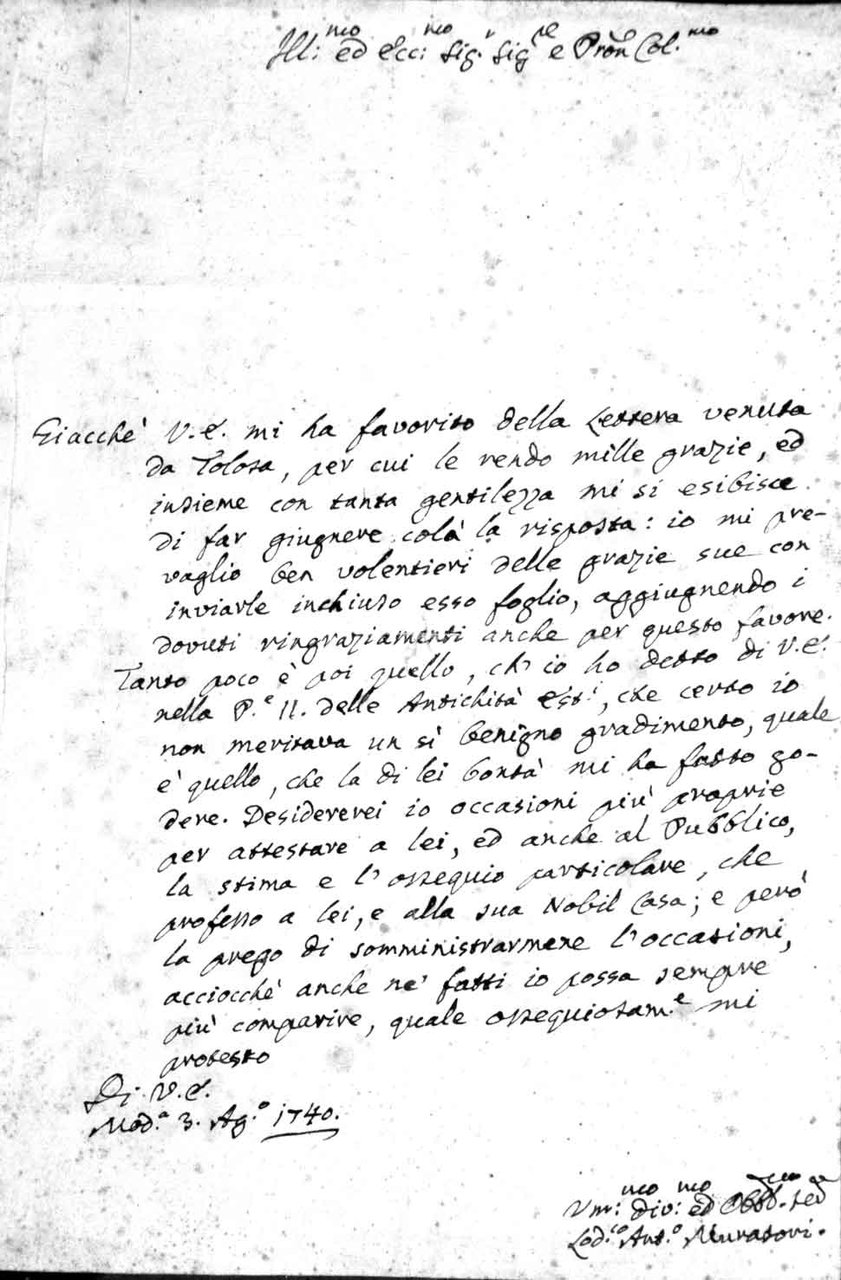 Ill:mo ed Ecc:mo Sig.r Sig.re e Pron Col.mo
Giacchè V.E. mi ha favorito della Lettera venuta
da Tolosa, per cui le rendo mille grazie, ed
insieme con tanta gentilezza mi si esibisce
di far giugnere colà la risposta: io mi pre-
vaglio ben volentieri delle grazie sue con
inviarle inchiuso esso foglio, aggiugnendo i
dovuti ringraziamenti anche per questo favore.
Tanto poco è poi quello, ch'io ho detto di V.E.
nella P.e II. delle Antichità Est.i, che certo io
non meritava un sì benigno gradimento, quale
è quello, che la di lei bontà mi ha fatto go-
dere. Desidererei io occasioni più proprie
per attestare a lei, ed anche al Pubblico,
la stima e l'ossequio particolare, che
professo a lei, e alla sua Nobil Casa; e però
la prego di somministrarmene l'occasioni,
acciocchè anche ne' fatti io possa sempre
più comparire, quale ossequiosam.e mi
protesto
Di V.E.
Mod.a 3. Ag.o 1740.
Um:mo div:mo ed Obb.mo
Lod.co Ant.o Muratori.